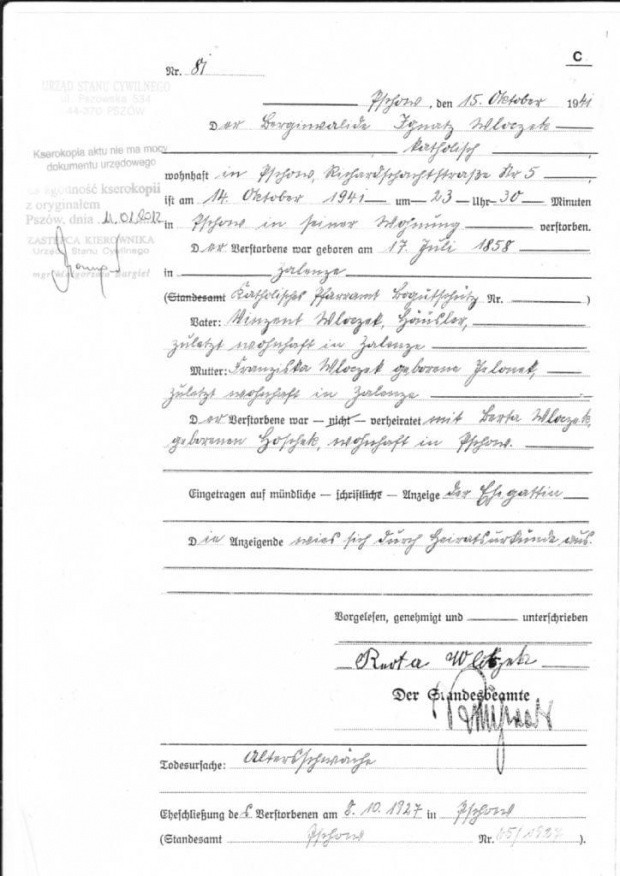 C
Nr. 81
URZĄD STANU CYWILNEGO
ul. Pszowska 534
44-370 PSZÓW
Pschow, den 15. Oktober 1941
Der Berginvalide Ignatz Wloczek
katholisch
Kserokopia aktu nie ma mocy
dokumentu urzędowego
wohnhaft in Pschow, Richardschachtstraße Nr 5
za zgodność kserokopii
z oryginałem
ist am 14. Oktober 1941 um 23 Uhr 30 Minuten
Pszów, dnia 11.01.2012
in Pschow in seiner Wohnung verstorben.
ZASTĘPCA KIEROWNIKA
Urzędu Stanu Cywilnego
Der Verstorbene war geboren am 17. Juli 1858
mgr Bargiel
in Zalenze
(Standesamt Katholisches Pfarramt Bogutschütz Nr. )
Vater: Vinzent Wloczek, Häusler,
zuletzt wohnhaft in Zalenze
Mutter: Franziska Wloczek geborene Jelonek,
zuletzt wohnhaft in Zalenze
Der Verstorbene war — nicht — verheiratet mit Berta Wloczek,
geborenen Hoschek, wohnhaft in Pschow.
Eingetragen auf mündliche — schriftliche — Anzeige der Ehegattin
Die Anzeigende wies sich durch Heiratsurkunde aus.
Vorgelesen, genehmigt und unterschrieben
Berta
Der Standesbeamte
Todesursache: Altersschwäche
Eheschließung des Verstorbenen am 8. 10. 1927 in Pschow
(Standesamt Pschow Nr. 65/1927 ).